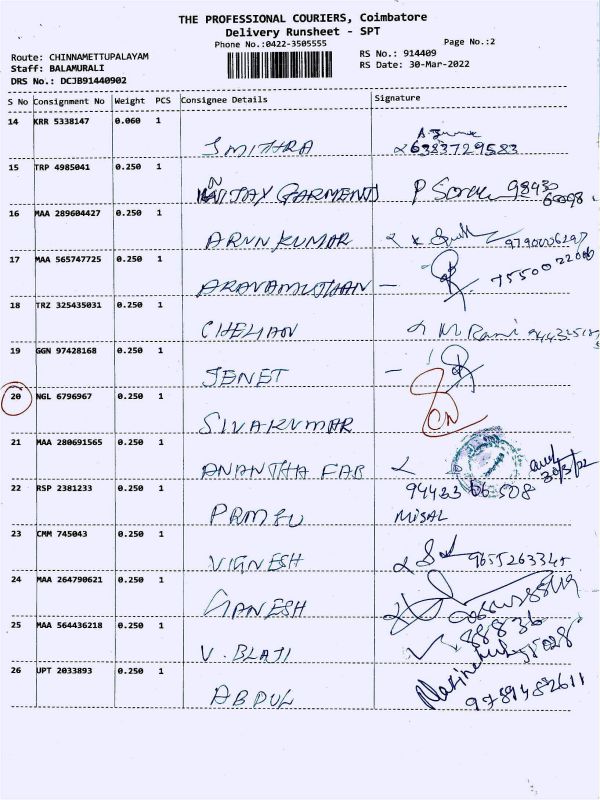 THE PROFESSIONAL COURIERS, Coimbatore
Delivery Runsheet - SPT
Phone No.:0422-3505555
Page No.:2
Route: CHINNAMETTUPALAYAM
RS No.: 914409
Staff: BALAMURALI
RS Date: 30-Mar-2022
DRS No.: DCJB91440902
S No Consignment No Weight PCS Consignee Details Signature
14 KRR 5338147 0.060 1
SMITHRA 6383729583
15 TRP 4985041 0.250 1
VIJAY GARMENTS P
16 MAA 289604427 0.250 1
ARUN KUMAR
17 MAA 565747725 0.250 1
ARAVAMUTHAN -
18 TRZ 325435031 0.250 1
CHELIAN M. Rani
19 GGN 97428168 0.250 1
JENET -
20 NGL 6796967 0.250 1
SIVAKUMAR CN
21 MAA 280691565 0.250 1
ANANTHA FAB 30/3/22
22 RSP 2381233 0.250 1
94423 06508
PRMSU MISAL
23 CMM 745043 0.250 1
VIGNESH 9655263345
24 MAA 264790621 0.250 1
GANESH
25 MAA 564436218 0.250 1
V. BLAJI 88836
26 UPT 2033893 0.250 1
ABDUL 9789482611